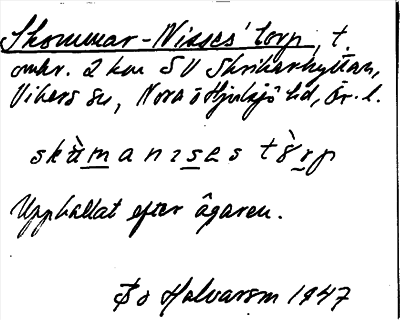 Skommar-Nisses' torp, t.
omkr. 2 km SV Skrikarhyttan,
Vikers sn, Nora o Hjulsjö hd, Ör. l.
skùmanɪses tɤ̀rp
Uppkallat efter ägaren.
Bo Halvarsm 1947